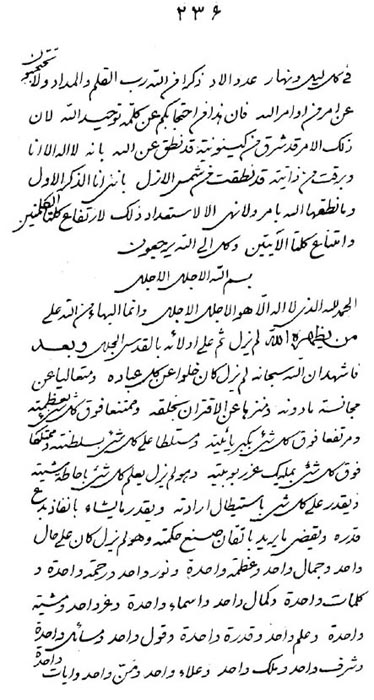 ٢٣۶
فی كل ليل و نهار عدد الاد ذكرا من الله رب القلم و المداد ولا تحتجبون
عن امر من اوامر الله فان هذا من احتجابكم عن كلمة توحيد الله لان
ذلك الامر قد شرق من كينونية قد نطق عن الله بانه لا اله الا انا
و برقت من ذاتية قد نطقت من شمس الازل باننی انا الذكر الاول
و ما نطقها الله بامر ولا نهی الا لاستعداد ذلك لارتفاع كلمتا الكلمتين
و امتناع كلتا الآيتين و كل الی الله يرجعون
بسم الله الاجلل الاجلل
الحمد لله الذی لا اله الا هو الاجلل الاجلل و انما البهاء من الله علی
من يظهره الله لم يزل ثم علی ادلائه بالقدس الجلل و بعد
فاشهد ان الله سبحانه لم يزل كان خلوا عن كل عباده و متعاليا عن
مجانسة ما دونه و منزها عن الاقتران بخلقه و ممتنعا فوق كل شیء بعظمته
و مرتفعا فوق كل شیء بكبريائيته و متسلطا علی كل شیء بسلطنته و ممتلكا
فوق كل شیء بمليك عز ربوبيته و هو لم يزل يعلم كل شیء باحاطة مشيته
و يقدر علی كل شیء باستيطال ارادته و يقدر ما يشاء بانفاذ بدع
قدره و يقضی ما يريد باتقان صنع حكمته و هو لم يزل كان علی حال
واحد و جمال واحد و عظمة واحدة و نور واحد و رحمة واحدة و
كلمات واحدة و كمال واحد و اسماء واحدة و عز واحد و مشية
واحدة و علم واحد و قدرة واحدة و قول واحد و مسائل واحدة
و شرف واحد و ملك واحد و علاء واحد و من واحد و ايات واحدة